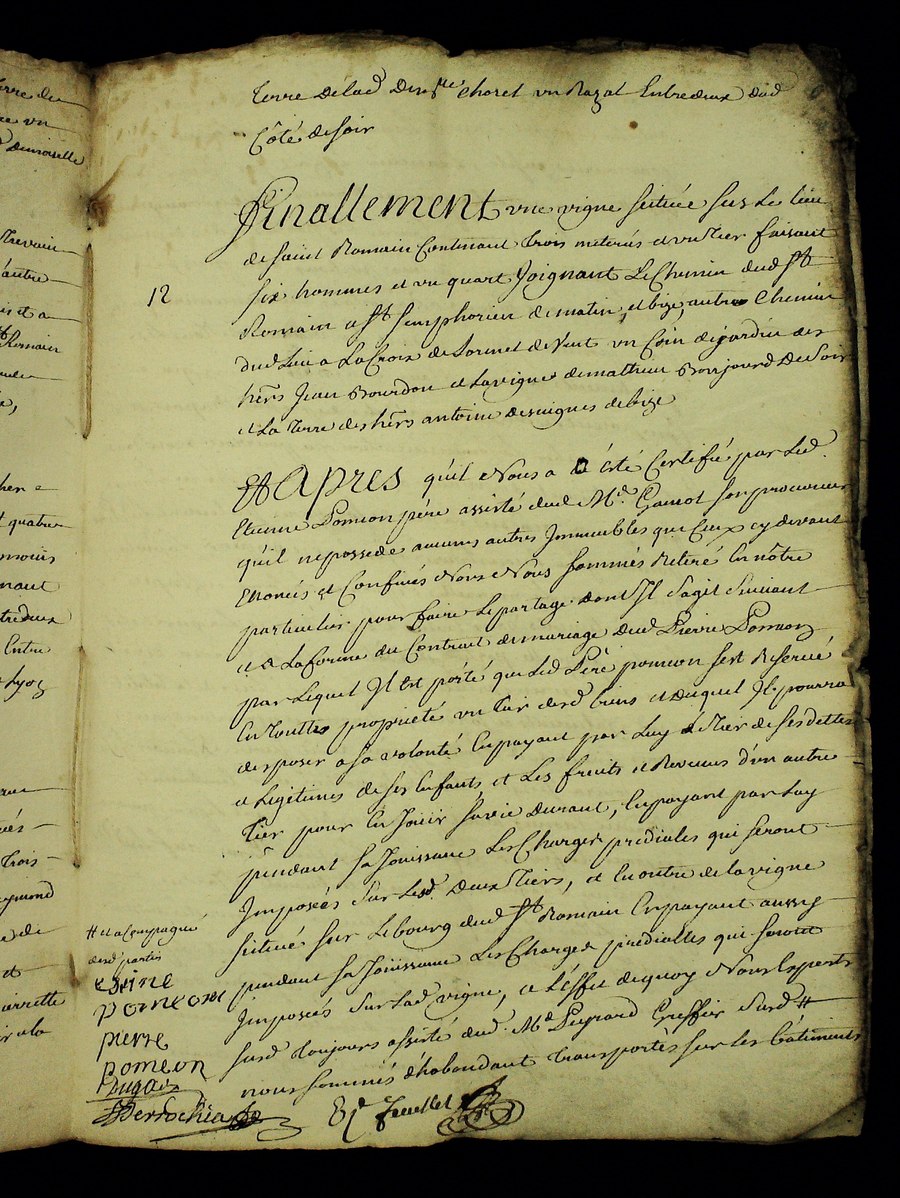 Terre De lad. Dem.lle Choret un Razat Entredeux dud
Côté de soir
Finallement une vigne scituée sur Le lieu
de saint Romain Contenant Trois meterés et un Tier faisant
12
six hommes et un quart Joignant Le Chemin dud St
Romain a St Simphorien de matin, et bize, autre Chemin
dud Lieu a La Croix de Lormet de Vent un Coin de jardin des
hers Jean Bourdon et La vigne de mathieu Bonjourd De Soir
et La Terre des hers antoine desvignes de bize
Et Apres qu'il Nous a été Certifié par Led.
Etienne Pomeon père assisté dud Me. Gamot son procureur
qu'il ne possede aucuns autres Immeubles que Ceux cy devant
Enoncés et Confinés Nous Nous sommes Retiré En nôtre
particulier pour faire Le partage dont Il S'agit Suivant
et a La forme du Contract de mariage dud Pierre Pomeon
par Lequel Il Est porté que Led Père pomeon s'est Reservé
En Touttes propriété un Tier desd biens et duquel Il pourra
disposer a sa volonté En payant par Luy Le Tier de ses dettes
et Legitimes de ses Enfants et Les fruits et Revenus d'un autre
Tier pour En Jouir sa vie Durant, En payant par Luy
pendant sa Jouissance Les Charges prediales qui seront
Imposées Sur Lesd. Deux Tiers, et En outre de la vigne
scitué sur Le bourg dud St Romain En payant aussy
pendant sa Jouissance Les Charges prediales qui seront
Imposées Sur Lad vigne, a L'effet de quoy Nous Experts
susd toujours assisté dud. Me Peyrard Greffier Susd #
nous sommes d'habondant Transportés sur les bâtiments
# et a Compagné
desd. partis
etine
pomeon
pierre
pomeon
Dugas
Derrochia
Feuillet